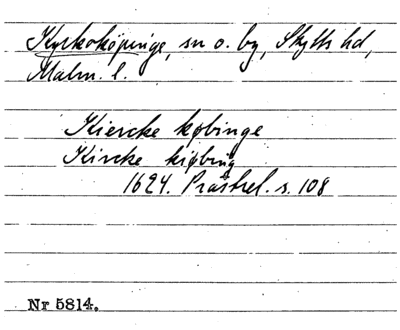 Kyrkoköpinge, sn o. by, Skytts hd,
Malm. l.
Kiercke købinge
Kircke kiøbing
1624. Prästrel. s. 108
Nr 5814.